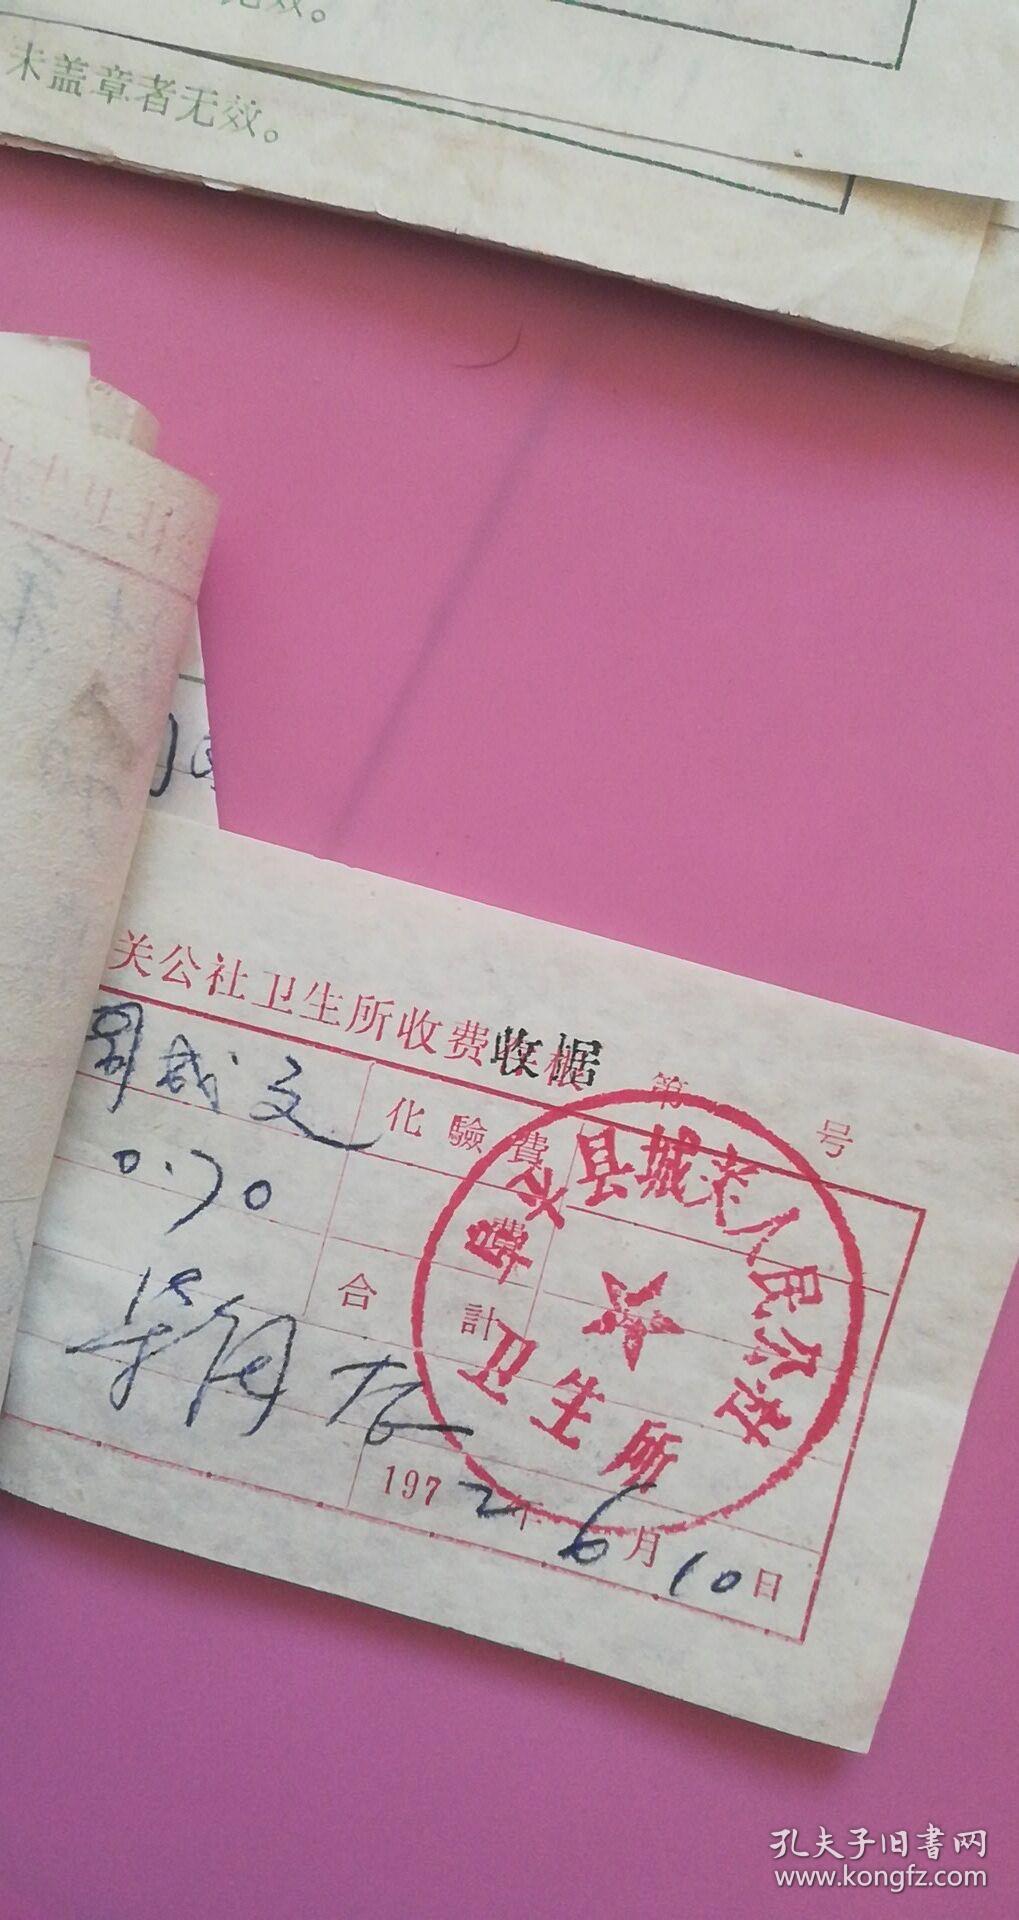 无效。
未盖章者无效。
关公社卫生所收费收据 第 号
成文 化驗費
0.70 費
合計
县城关人民公社
卫生所
1972年6月10日
孔夫子旧书网
www.kongfz.com